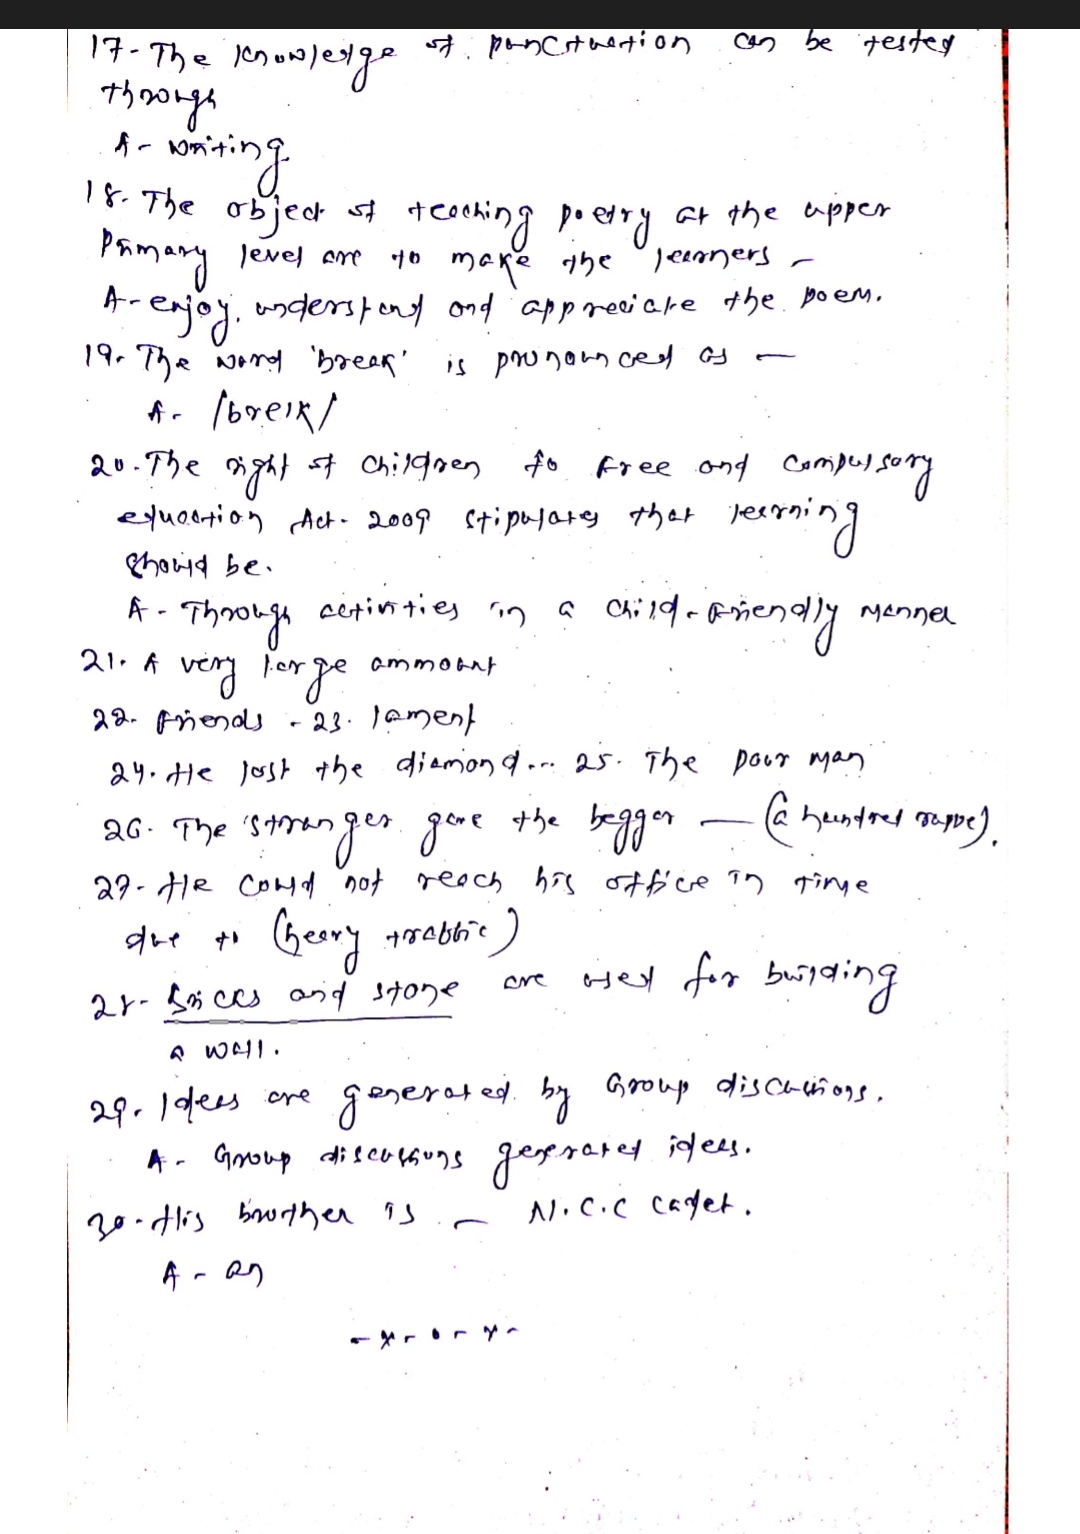 17- The knowledge of punctuation can be tested
through
A- writing
18. The object of teaching poetry at the upper
Primary level are to make the learners -
A- enjoy, understand and appreciate the poem.
19. The word 'break' is pronounced as -
A- /breik/
20. The right of children to free and compulsory
education Act- 2009 stipulates that learning
should be.
A- Through activities in a child-friendly manner
21. A very large ammount
22. friends - 23. lament
24. He lost the diamond... 25. The poor man
26. The stranger gave the beggar — (a hundred rupee).
27- He could not reach his office in time
due to (heavy traffic)
28- Bricks and stone are used for building
a wall.
29. Ideas are generated by Group discussions.
A- Group discussions generated ideas.
30- His brother is - N.C.C cadet.
A - an
- x - o - x -